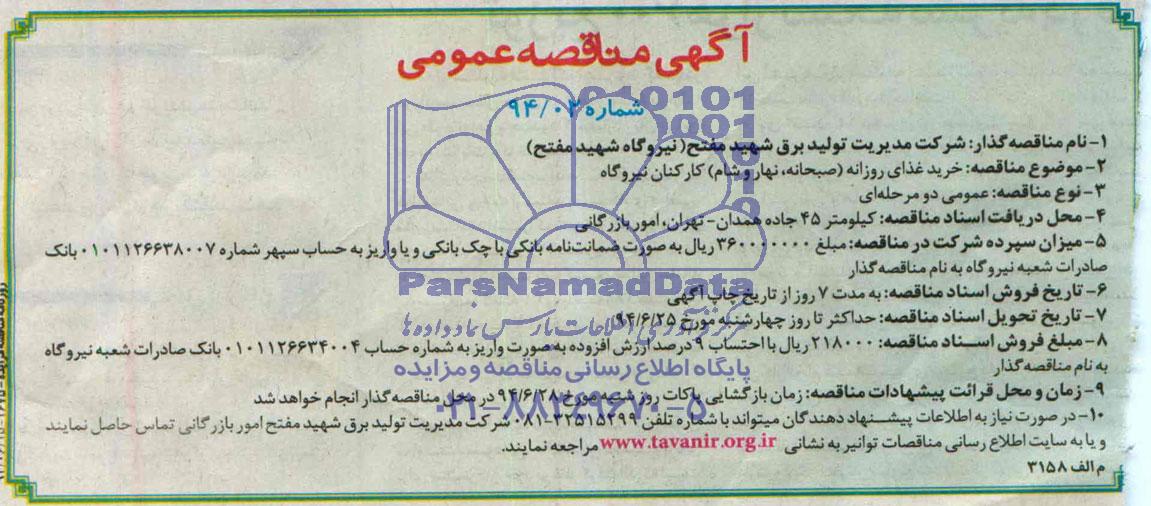 آگهی مناقصه عمومی
شماره ۹۴/۰۲
۱- نام مناقصه‌گذار: شرکت مدیریت تولید برق شهید مفتح( نیروگاه شهید مفتح)
۲- موضوع مناقصه: خرید غذای روزانه (صبحانه، نهار و شام) کارکنان نیروگاه
۳- نوع مناقصه: عمومی دو مرحله‌ای
۴- محل دریافت اسناد مناقصه: کیلومتر ۴۵ جاده همدان- تهران، امور بازرگانی
۵- میزان سپرده شرکت در مناقصه: مبلغ ۳۶۰۰۰۰۰۰۰ ریال به صورت ضمانت‌نامه بانکی یا چک بانکی و یا واریز به حساب سپهر شماره ۰۱۰۱۱۲۶۶۳۸۰۰۷ بانک
صادرات شعبه نیروگاه به نام مناقصه‌گذار
۶- تاریخ فروش اسناد مناقصه: به مدت ۷ روز از تاریخ چاپ آگهی
۷- تاریخ تحویل اسناد مناقصه: حداکثر تا روز چهارشنبه مورخ ۹۴/۶/۲۵
۸- مبلغ فروش اسناد مناقصه: ۲۱۸۰۰۰ ریال با احتساب ۹ درصد ارزش افزوده به صورت واریز به شماره حساب ۰۱۰۱۱۲۶۶۳۴۰۰۴ بانک صادرات شعبه نیروگاه
به نام مناقصه‌گذار
۹- زمان و محل قرائت پیشنهادات مناقصه: زمان بازگشایی پاکات روز شنبه مورخ ۹۴/۶/۲۸ در محل مناقصه‌گذار انجام خواهد شد
۱۰- در صورت نیاز به اطلاعات پیشنهاد دهندگان میتواند با شماره تلفن ۲۲۵۱۵۲۹۹-۰۸۱ شرکت مدیریت تولید برق شهید مفتح امور بازرگانی تماس حاصل نمایند
و یا به سایت اطلاع رسانی مناقصات توانیر به نشانی www.tavanir.org.ir مراجعه نمایند.
م الف ۳۱۵۸
ParsNamadData
مرکز فرآوری اطلاعات پارس نماد داده ها
پایگاه اطلاع رسانی مناقصه و مزایده
۰۲۱-۸۸۳۴۹۶۷۰-۵